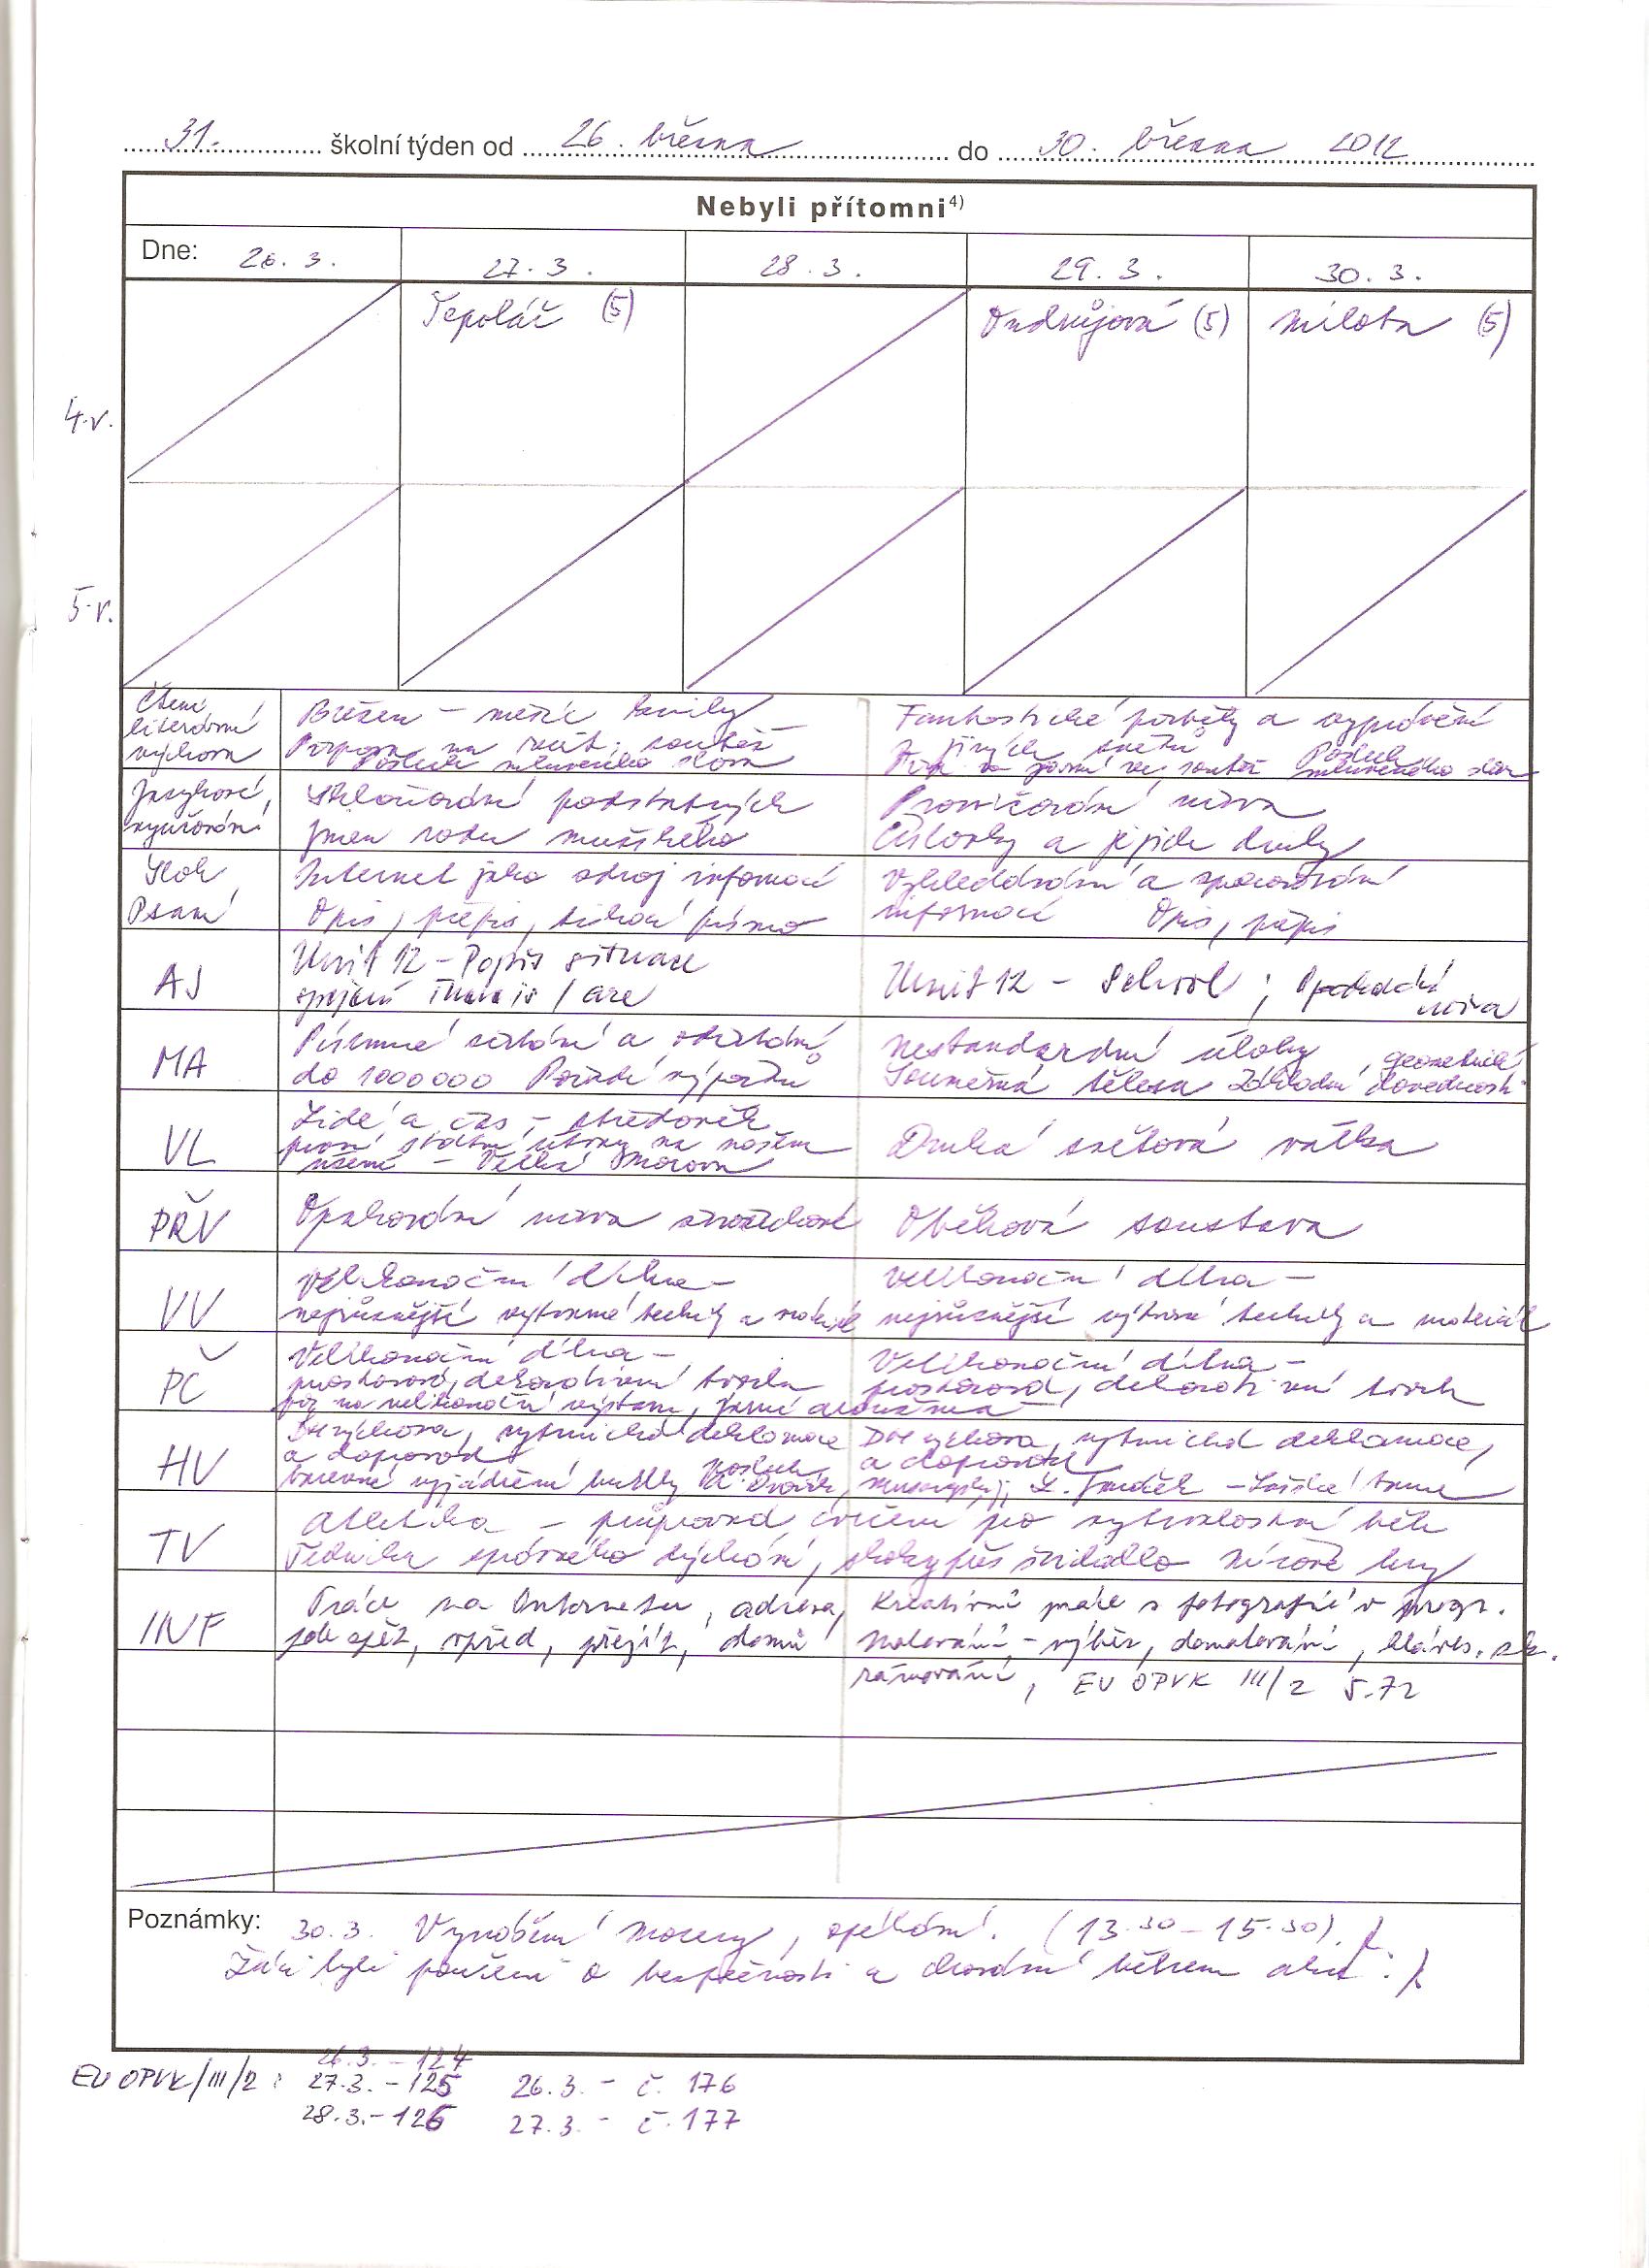 31. školní týden od 26. března do 30. března 2012
Nebyli přítomni4)
Dne: 26. 3. 27. 3. 28. 3. 29. 3. 30. 3.
(5) Ondrůjová (5) Milota (5)
4.r.
5.r.
Čtení
literární
výchova
Březen – měsíc knihy
Poslech mluveného slova
Fantastické příběhy a vyprávění
z jiných světů
Poslech mluveného slova
Jazykové
vyučování
Skloňování podstatných
jmen rodu mužského
Procvičování učiva
Číslovky a jejich druhy
Sloh
Psaní
Internet jako zdroj informací
Opis, přepis, písmo
Vyhledávání a zpracování
informací Opis, přepis
AJ
Unit 12 – Popis situace
spojení There is / are
Unit 12 – School ; Opakování
učiva
MA
Písemné sčítání a odčítání
do 1000000 Pořadí výpočtů
Nestandardní úlohy, geometrické
Souměrná tělesa Základní dovednosti
VL
Lidé a čas – středověk
první státní útvary na našem
území – Velká Morava
Druhá světová válka
PŘV
Opakování učiva
Oběhová soustava
VV
Velikonoční dílna –
nejrůznější výtvarné techniky a materiál
Velikonoční dílna –
nejrůznější výtvarné techniky a materiál
PČ
Velikonoční dílna –
prostorová, dekorativní tvorba
na velikonoční výstavu, jarní
Velikonoční dílna –
prostorová, dekorativní tvorba
HV
výchova, rytmická deklamace
a doprovod
vyjádření hudby Poslech A. Dvořák,
výchova, rytmická deklamace,
a doprovod
L. Janáček – Lašské tance
TV
Atletika – průpravná cvičení pro vytrvalostní běh
Technika správného dýchání, skoky přes švihadlo Míčové hry
INF
Práce na Internetu, adresa,
jdi zpět, vpřed, přejít, domů
Kreativní práce s fotografií v progr.
Malování – výběr, domalování, kláves. zk.
rámování, EU OPVK III/2 5.72
Poznámky: 30.3. Vynášení Moreny, opékání. (13.30 – 15.30).
Žáci byli poučeni o bezpečnosti a chování během akce.
EU OPVK/III/2 : 26.3. – 124
27.3. – 125 26.3. – č. 176
28.3. – 126 27.3. – č. 177